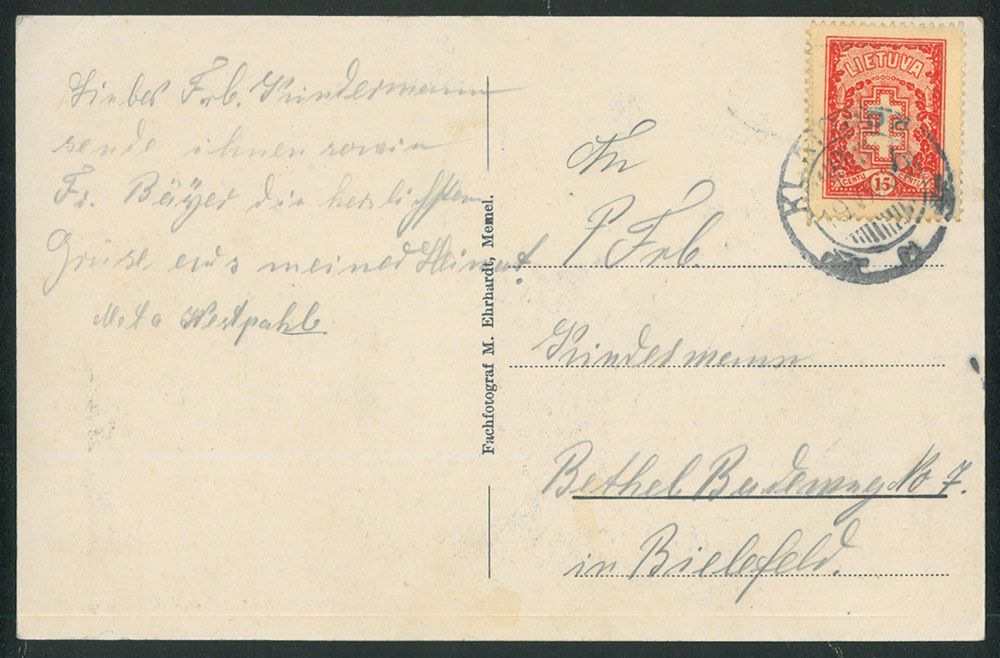 Liebes Frb. Kindermann
sende ihnen sowie
Fr. Bäyer die herzlichsten
Grüse aus meiner Heimat.
Meta Westpahl
Fachfotograf M. Ehrhardt, Memel.
LIETUVA
CENTŲ 15 CENTŲ
KL
An
Frb.
Kindermann
Bethel Badeweg No 7.
in Bielefeld.